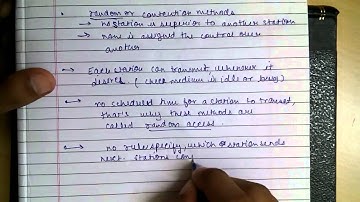 • random or contention methods
→ no station is superior to another station
→ none is assigned the control over
another
→ Each station can transmit whenever it
desires. (check medium is idle or busy)
→ no scheduled time for a station to transmit,
that's why these methods are
called random access.
→ no rule specify, which station sends
next. stations con